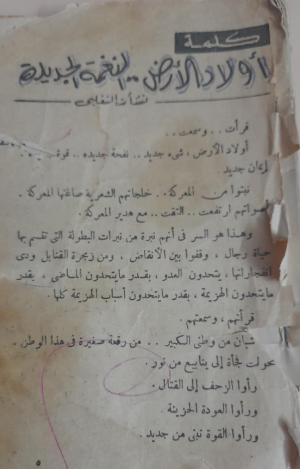 كلمة
أولاد الأرض .. النغمة الجديدة
نشأت التغلبي
قرأت .. وسمعت ..
أولاد الأرض ، شىء جديد .. نفحة جديدة .. قوة
إيمان جديد
نبتوا من المعركة . خلجاتهم الشعرية صاغتها المعركة .
أصواتهم ارتفعت .. التقت .. مع هدير المعركة .
وهذا هو السر فى أنهم نبرة من نبرات البطولة التى تقسم بها
حياة رجال ، وقفوا بين الأنقاض ، ومن زمجرة القنابل ودى
انفجاراتها ، يتحدون العدو ، بقدر مايتحدون الماضى ، بقدر
مايتحدون الهزيمة ، بقدر مايتحدون أسباب الهزيمة كلها .
قرأتهم ، وسمعتهم .
شبان من وطنى الكبير .. من رقعة صغيرة فى هذا الوطن .
تحولت فجأة إلى ينابيع من نور .
رأوا الزحف إلى القتال .
ورأوا العودة الحزينة .
ورأوا القوة تبنى من جديد .
٥